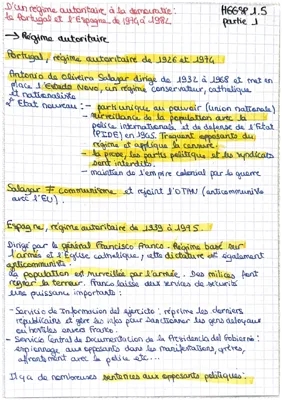 D'un régime autoritaire à la démocratie :
le Portugal et l'Espagne de 1974 à 1982
HGGSP 1.5
partie 1
→ Régime autoritaire
Portugal, régime autoritaire de 1926 et 1974
Antonio de Oliveira Salazar dirige de 1932 à 1968 et met en
place l'Estado Novo, un régime conservateur, catholique
et nationaliste
↳ Etat nouveau : - parti unique au pouvoir (union nationale)
- surveillance de la population avec la
police internationale et de défense de l'Etat
(PIDE) en 1945. Traquent opposants du
régime et applique la censure.
- la presse, les partis politiques et les syndicats
sont interdits.
- maintien de l'empire colonial par la guerre
Salazar ≠ communisme et rejoint l'OTAN (anticommuniste
avec l'EU).
Espagne, régime autoritaire de 1939 à 1975.
Dirigé par le général Francisco Franco. Régime basé sur
l'armée et l'Eglise catholique, cette dictature est également
anticommuniste.
La population est surveillée par l'armée. Des milices font
régner la terreur. Franco laisse aux services de sécurité
une puissance importante :
- Servicio de Informacion del ejercito : réprime les derniers
républicains et gère les infos pour sanctionner les gens déloyaux
ou hostiles envers Franco.
- Servicio Central de Documentation de la Presidencia del Gobierno :
espionnage aux opposants dans les manifestations, grèves,
affrontement avec la police etc...
Il y a de nombreuses sentences aux opposants politiques :